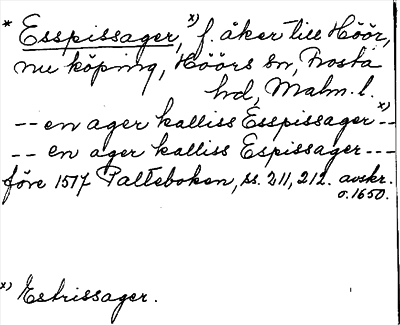 * Esspissager, x) f. åker till Höör,
nu köping, Höörs sn, Frosta
hd, Malm. l.
-- en ager kalliss Esspissager x) --
-- en ager kalliss Espissager ---
före 1517 Palteboken, ss. 211, 212. avskr.
o. 1650.
x) Estrissager.